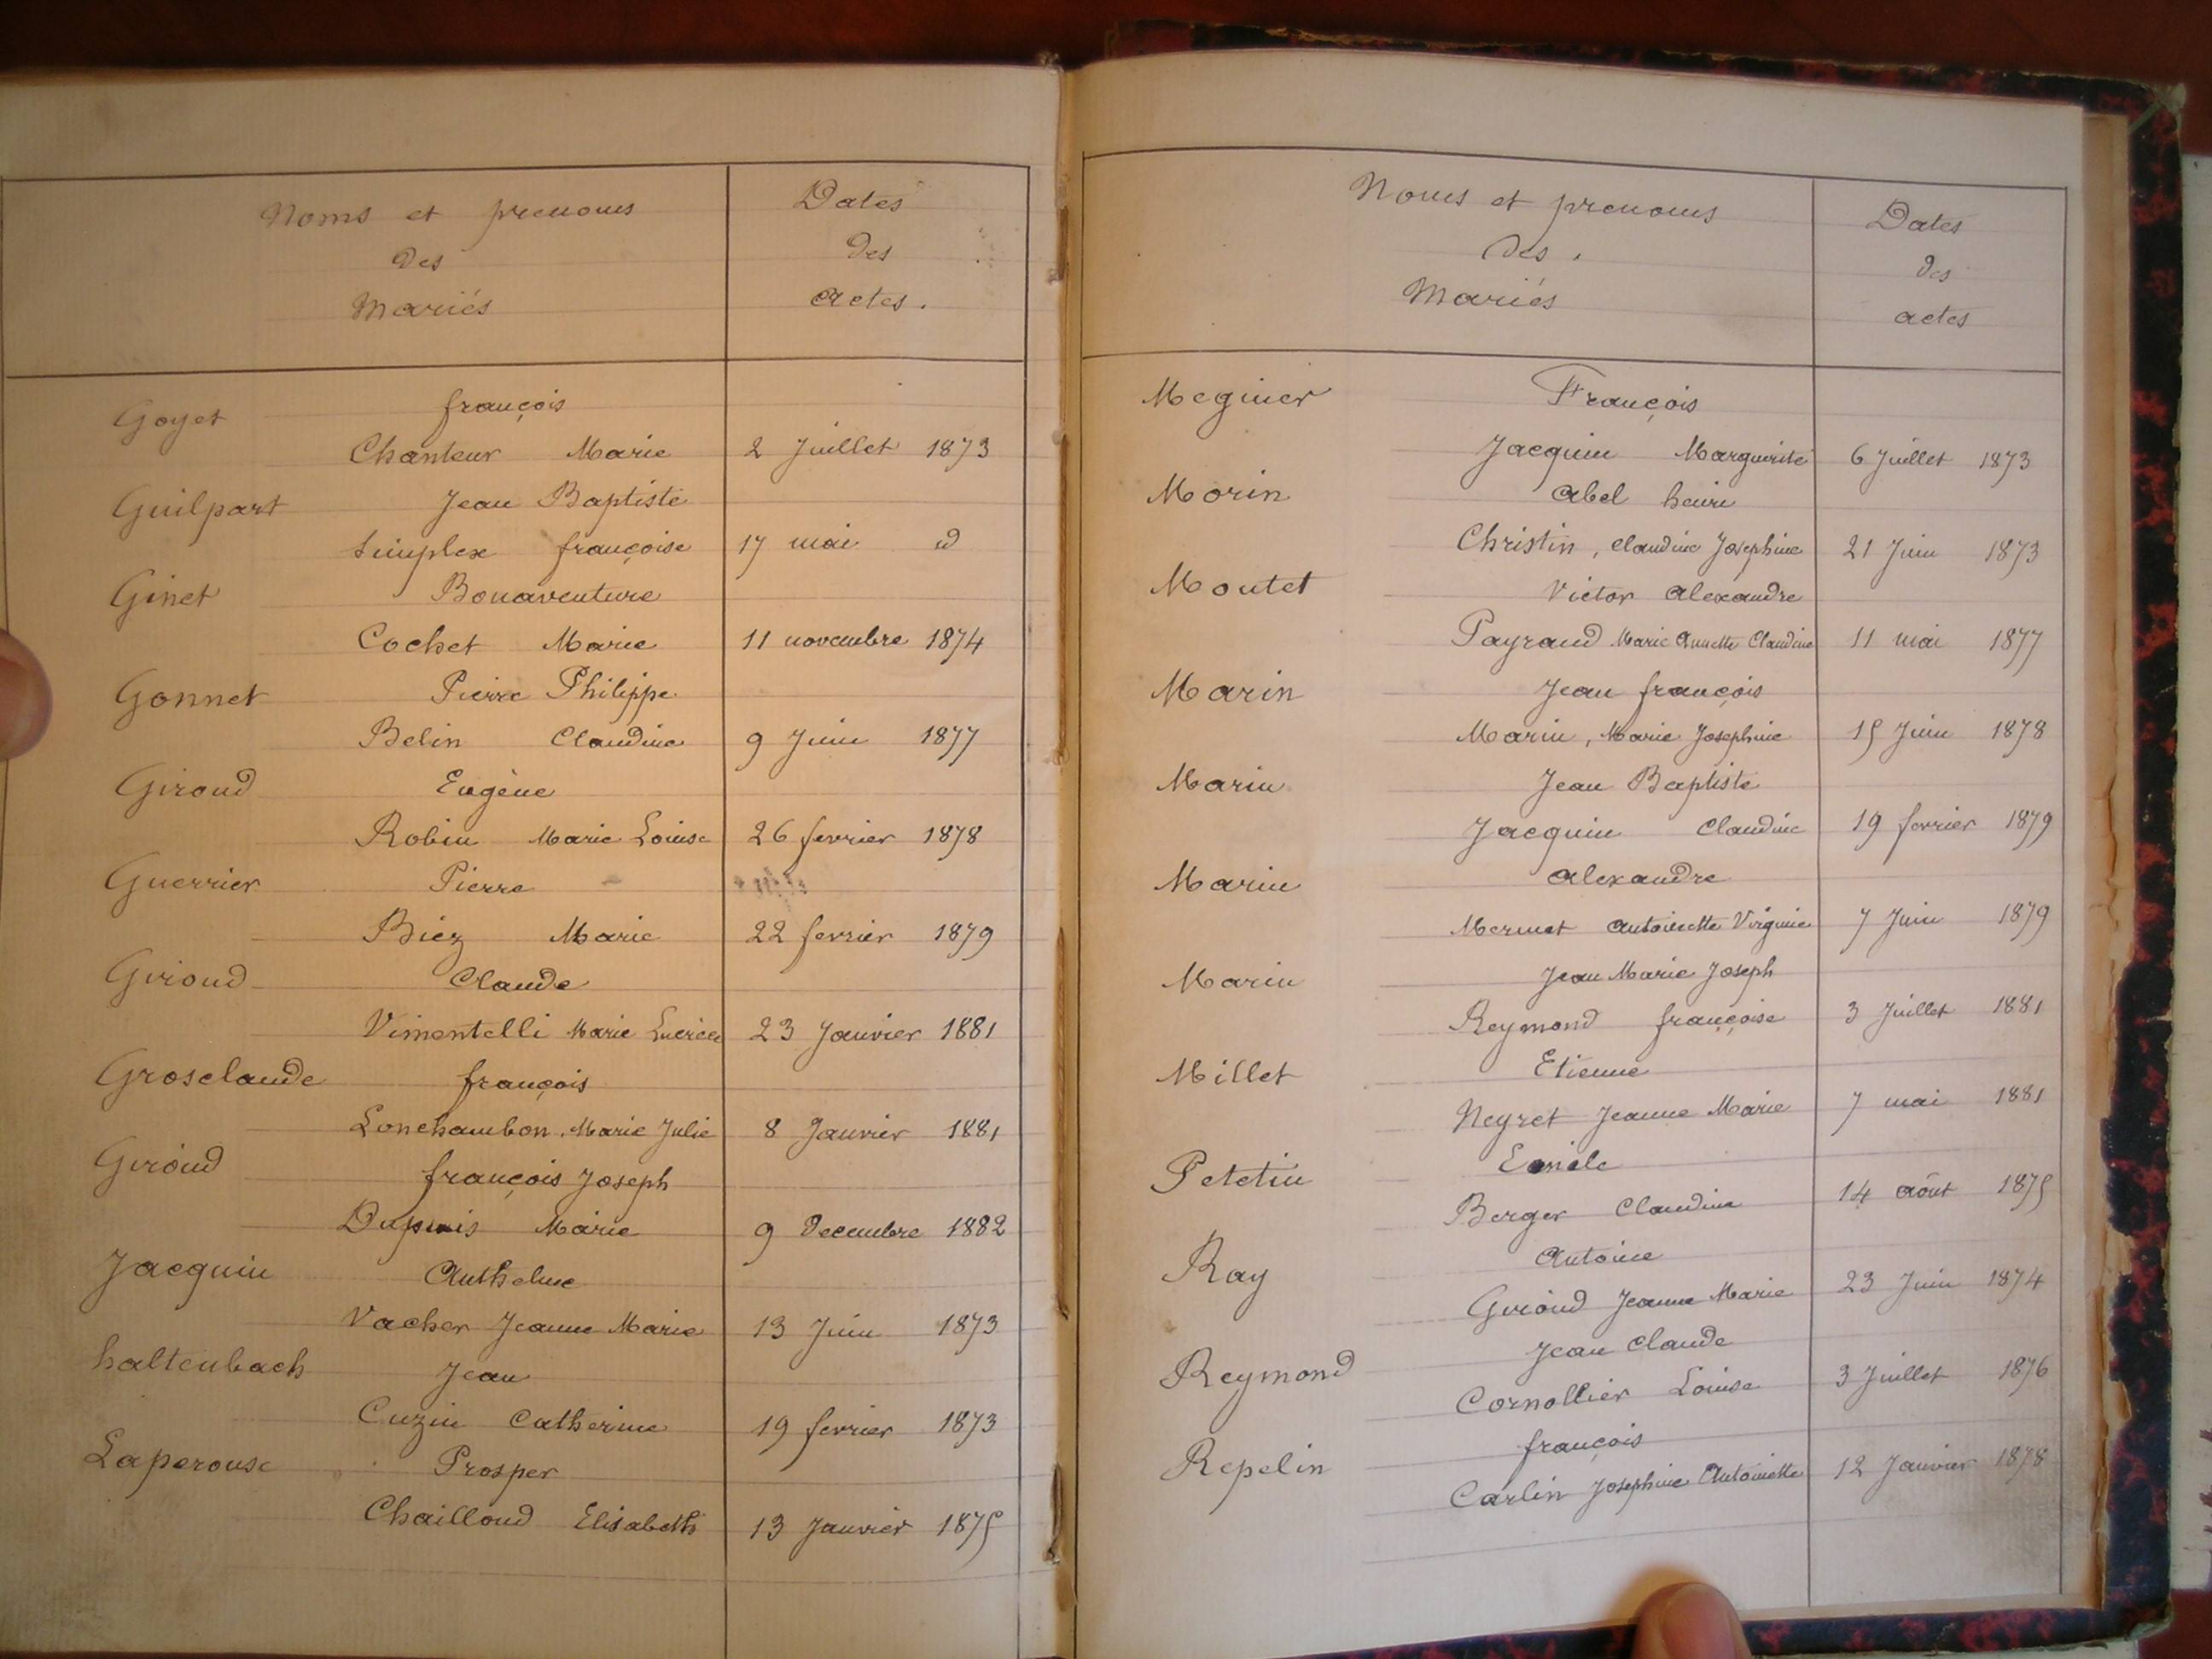 Noms et prenoms
des
Mariés
Dates
des
actes.
Goyet françois
Chanteur Marie 2 Juillet 1873
Guilpart Jean Baptiste
Simplex françoise 17 mai id
Ginet Bonaventure
Cochet Marie 11 novembre 1874
Gonnet Pierre Philippe
Belin Claudine 9 Juin 1877
Giroud Eugène
Robin Marie Louise 26 fevrier 1878
Guerrier Pierre
Biez Marie 22 fevrier 1879
Giroud Claude
Vimentelli Marie 23 Janvier 1881
Grosclaude françois
Lonchambon, Marie Julie 8 Janvier 1881
Giroud françois Joseph
Dupuis Marie 9 Decembre 1882
Jacquin Anthelme
Vacher Jeanne Marie 13 Juin 1873
haltenbach Jean
Cuzin Catherine 19 fevrier 1873
Laperouse Prosper
Chailloud Elisabeth 13 Janvier 1875
Noms et prenoms
des.
Mariés
Dates
des
actes
Meginer François
Jacquin Marguerite 6 Juillet 1873
Morin abel henri
Christin, claudine Josephine 21 Juin 1873
Moutet Victor alexandre
Payraud Marie Annette Claudine 11 mai 1877
Marin Jean françois
Marin, Marie Josephine 15 Juin 1878
Marin Jean Baptiste
Jacquin Claudine 19 fevrier 1879
Marin alexandre
Mermet antoinette Virginie 7 Juin 1879
Marin Jean Marie Joseph
Reymond françoise 3 Juillet 1881
Millet Etienne
Neyret Jeanne Marie 7 mai 1881
Petetin Emile
Berger Claudine 14 août 1875
Ray Antoine
Giroud Jeanne Marie 23 Juin 1874
Reymond Jean Claude
Cornollier Louise 3 Juillet 1876
Repelin françois
Carlin Josephine Antoinette 12 Janvier 1878